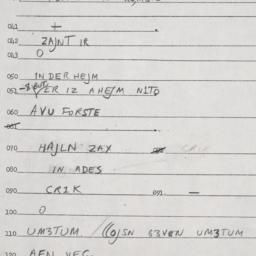 041 +
042 ZAJNT IR
043 O
050 IN DER HEJM
051 VER IZ AHEJM NITO
060 AVU FORSTE
061
070 HAJLN ZAX
080 IN ADES
090 CRIK 091 —
100 O
110 UM3TUM / (OJSN G3VEN UM3TUM
120 AEN VEG.